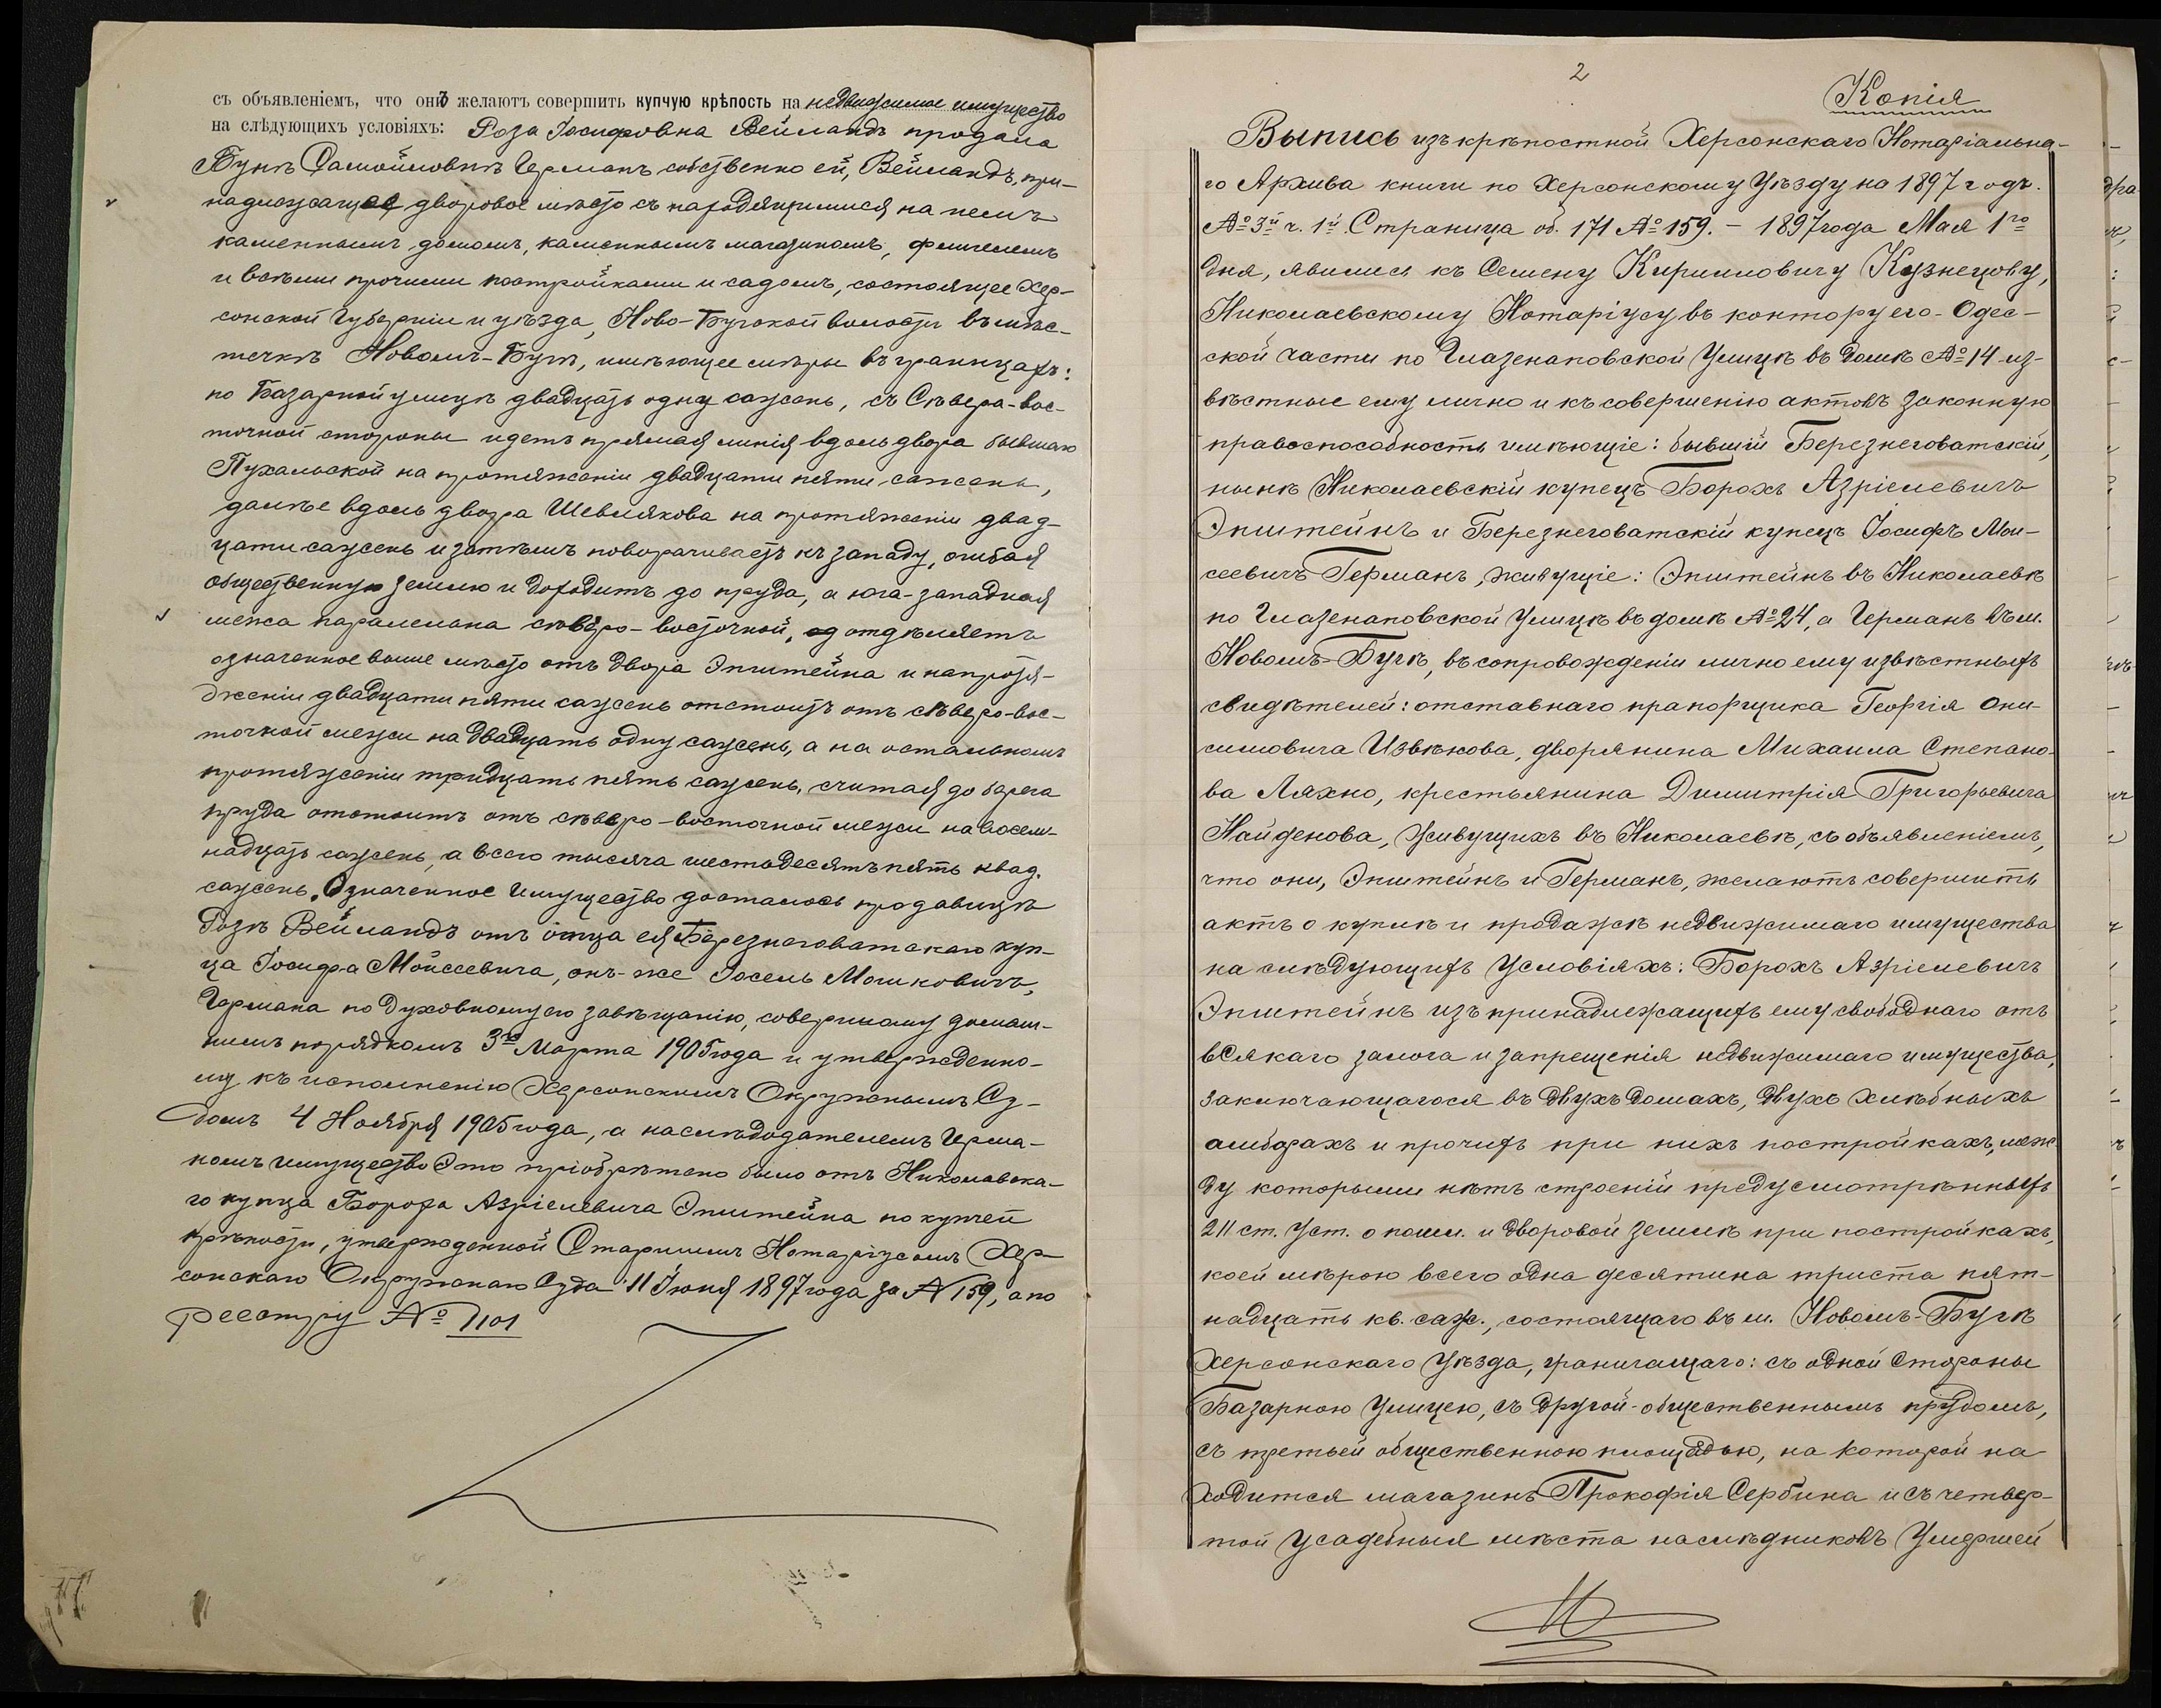 съ объявленіемъ, что онѣ желаютъ совершить купчую крѣпость на недвижимое имущество
на слѣдующихъ условіяхъ: Роза Іосифовна Вейландъ продала
Бунѣ Самойловнѣ Германъ собственно ей, Вейландъ, при-
надлежащее дворовое мѣсто съ находящимися на немъ
каменнымъ домомъ, каменнымъ магазиномъ, флигелемъ
и всѣми прочими постройками и садомъ, состоящее Хер-
сонской Губерніи и уѣзда, Ново-Бугской волости въ мѣс-
течкѣ Новомъ-Бугѣ, имѣющее мѣры въ границахъ:
по Базарной улицѣ двадцать одну сажень, съ Сѣверо-вос-
точной стороны идетъ прямая линія вдоль двора бывшаго
Пухальской на протяженіи двадцати пяти сажень,
далѣе вдоль двора Шевлякова на протяженіи двад-
цати сажень и затѣмъ поворачиваетъ къ западу, огибая
общественную землю и доходитъ до пруда, а юго-западная
межа паралельна сѣверо-восточной, отдѣляетъ
означенное выше мѣсто отъ двора Эпштейна и на протя-
женіи двадцати пяти сажень отстоитъ отъ сѣверо-вос-
точной межи на двадцать одну сажень, а на остальномъ
протяженіи тридцать пять сажень, считая до берега
пруда отстоитъ отъ сѣверо-восточной межи на восем-
надцать сажень, а всего тысяча шестьдесятъ пять квад.
сажень. Означенное имущество досталось продавицѣ
Розѣ Вейландъ отъ отца ея Березнеговатскаго куп-
ца Іосифа Мойсеевича, онъ-же Іосель Мошковичъ,
Германа по духовному его завѣщанію, совершоному домаш-
нимъ порядкомъ 3го Марта 1905 года и утвержденно-
му къ исполненію Херсонскимъ Окружнымъ Су-
домъ 4 Ноября 1905 года, а наслѣдодателемъ Герма-
номъ имущество это пріобрѣтено было отъ Николаевска-
го купца Бороха Азріелевича Эпштейна по купчей
крѣпости, утвержденной Старшимъ Нотаріусомъ Хер-
сонскаго Окружнаго Суда 11 Іюня 1897 года за № 159, а по
реестру № 1101
2
Копія
Выпись изъ крѣпостной Херсонскаго Нотаріально-
го Архива книги по Херсонскому Уѣзду на 1897 годъ.
№ 3й ч. 1й. Страница об. 171 № 159. - 1897 года Мая 1го
дня, явились къ Семену Кирилловичу Кузнецову,
Николаевскому Нотаріусу въ контору его - Одес-
ской части по Глазенаповской Улицѣ въ домѣ № 14 - из-
вѣстные ему лично и къ совершенію актовъ законную
правоспособность имѣющіе: бывшій Березнеговатскій,
нынѣ Николаевскій купецъ Борохъ Азріелевичъ
Эпштейнъ и Березнеговатскій купецъ Іосифъ Мои-
сеевичъ Германъ, живущіе: Эпштейнъ въ Николаевѣ
по Глазенаповской Улицѣ въ домѣ № 24, а Германъ въ м.
Новомъ-Бугѣ, въ сопровожденіи лично ему извѣстныхъ
свидѣтелей: отставнаго прапорщика Георгія Они-
симовича Извѣкова, дворянина Михаила Степано-
ва Ляхно, крестьянина Димитрія Григорьевича
Найденова, живущихъ въ Николаевѣ, съ объявленіемъ,
что они, Эпштейнъ и Германъ, желаютъ совершить
актъ о куплѣ и продажѣ недвижимаго имущества
на слѣдующихъ условіяхъ: Борохъ Азріелевичъ
Эпштейнъ изъ принадлежащихъ ему свободнаго отъ
всякаго залога и запрещенія недвижимаго имущества,
заключающагося въ двухъ домахъ, двухъ хлѣбныхъ
амбарахъ и прочихъ при нихъ постройкахъ, меж
ду которыми нѣтъ строеній предусмотрѣнныхъ
211 ст. Уст. о пошл. и дворовой землѣ при постройкахъ,
коей мѣрою всего одна десятина триста пят-
надцать кв. саж., состоящаго въ м. Новомъ-Бугѣ
Херсонскаго Уѣзда, граничащаго: съ одной стороны
Базарною Улицею, съ другой - общественнымъ прудомъ,
съ третьей общественною площадью, на которой на-
ходится магазинъ Прокофія Сербина и съ четвер-
той усадебныя мѣста наслѣдниковъ Умершей